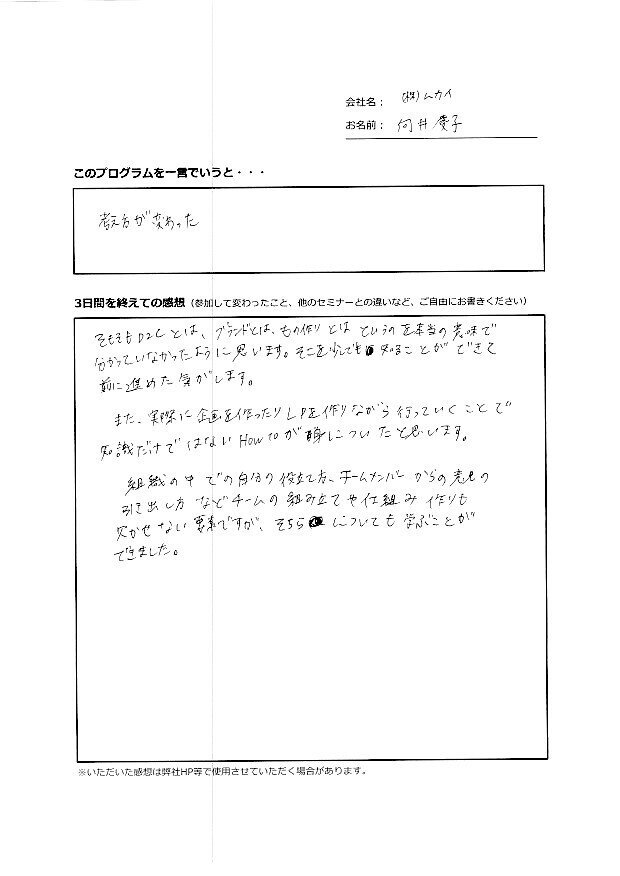 会社名： (株)ムカイ
お名前： 向井 愛子
このプログラムを一言でいうと・・・
考え方が変わった
3日間を終えての感想（参加して変わったこと、他のセミナーとの違いなど、ご自由にお書きください）
そもそもD2Cとは、ブランドとは、もの作りとはというのを本当の意味で
分かっていなかったように思います。そこを少しでも知ることができて
前に進めた気がします。
また、実際に企画を作ったりLPを作りながら行っていくことで
知識だけではないHow toが身についたと思います。
組織の中での自分の役立て方、チームメンバーからの意見の
引き出し方などチームの組み立てや仕組み作りも
欠かせない要素ですが、そちらについても学ぶことが
できました。
※いただいた感想は弊社HP等で使用させていただく場合があります。